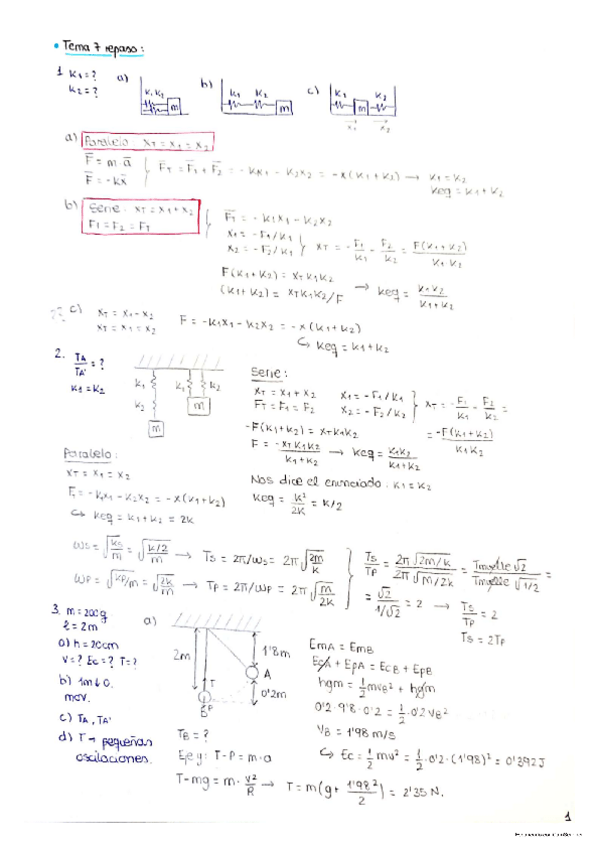 • Tema 7 repaso:
1 K1 = ? a) b) c)
K2 = ?
K1 K2 m
K1 K2 m
K1 m K2
x1 x2
a) Paralelo XT = X1 = X2
F = m·a
F = -kx
FT = F1 + F2 = -K1X1 - K2X2 = -x(K1+K2) → K1 = K2
Keq = K1 + K2
b) Serie: XT = X1 + X2
F1 = F2 = FT
FT = -K1X1 - K2X2
X1 = -F1/K1
X2 = -F2/K2
XT = -F1/K1 - F2/K2 = F(K1+K2)/K1K2
F(K1+K2) = XTK1K2
(K1+K2) = XTK1K2/F → Keq = K1K2/K1+K2
c) XT = X1 - X2
XT = X1 = X2
F = -K1X1 - K2X2 = -x(K1+K2)
↳ Keq = K1 + K2
2. TA/TA' = ?
K1 = K2
K1 K2 m
K1 K2 m
Serie:
XT = X1 + X2 X1 = -F1/K1
FT = F1 = F2 X2 = -F2/K2
XT = -F1/K1 - F2/K2 =
= -F(K1+K2)/K1K2
-F(K1+K2) = XTK1K2
F = -XTK1K2/K1+K2 → Keq = K1K2/K1+K2
Nos dice el enunciado: K1 = K2
Keq = K²/2K = K/2
Paralelo:
XT = X1 = X2
F1 = -K1X1 - K2X2 = -x(K1+K2)
↳ Keq = K1 + K2 = 2K
ωS = √KS/m = √K/2/m → TS = 2π/ωS = 2π√2m/K
ωP = √KP/m = √2K/m → TP = 2π/ωP = 2π√m/2K
TS/TP = 2π√2m/K / 2π√m/2K = Tmuelle√2 / Tmuelle√1/2 =
= √2 / 1/√2 = 2 → TS/TP = 2
TS = 2TP
3. m = 200g
ℓ = 2m
a) h = 20cm
v = ? Ec = ? T = ?
b) 1m ↓ 0.
mov.
c) TA, TA'
d) T → pequeñas
oscilaciones.
a)
2m
1'8m
A
0'2m
T
P
B
EmA = EmB
EcA + EpA = EcB + EpB
hgm = 1/2 mvB² + hgm
0'2·9'8·0'2 = 1/2·0'2 vB²
vB = 1'98 m/s
↳ Ec = 1/2 mv² = 1/2·0'2·(1'98)² = 0'392J
TB = ?
Eje y: T-P = m·a
T-mg = m·v²/R → T = m(g + 1'98²/2) = 2'35 N.
1